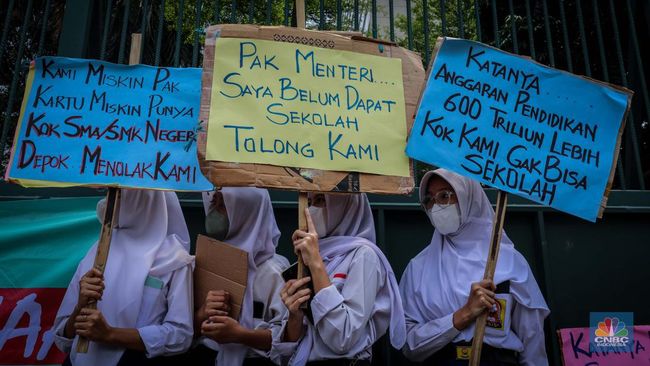 KAMI MISKIN PAK
KARTU MISKIN PUNYA
KOK SMA/SMK NEGER
DEPOK MENOLAK KAMI
PAK MENTERI....
SAYA BELUM DAPAT
SEKOLAH
TOLONG KAMI
KATANYA........
ANGGARAN PENDIDIKAN
600 TRILIUN LEBIH
KOK KAMI GAK BISA
SEKOLAH
KATANYA
CNBC
INDONESIA